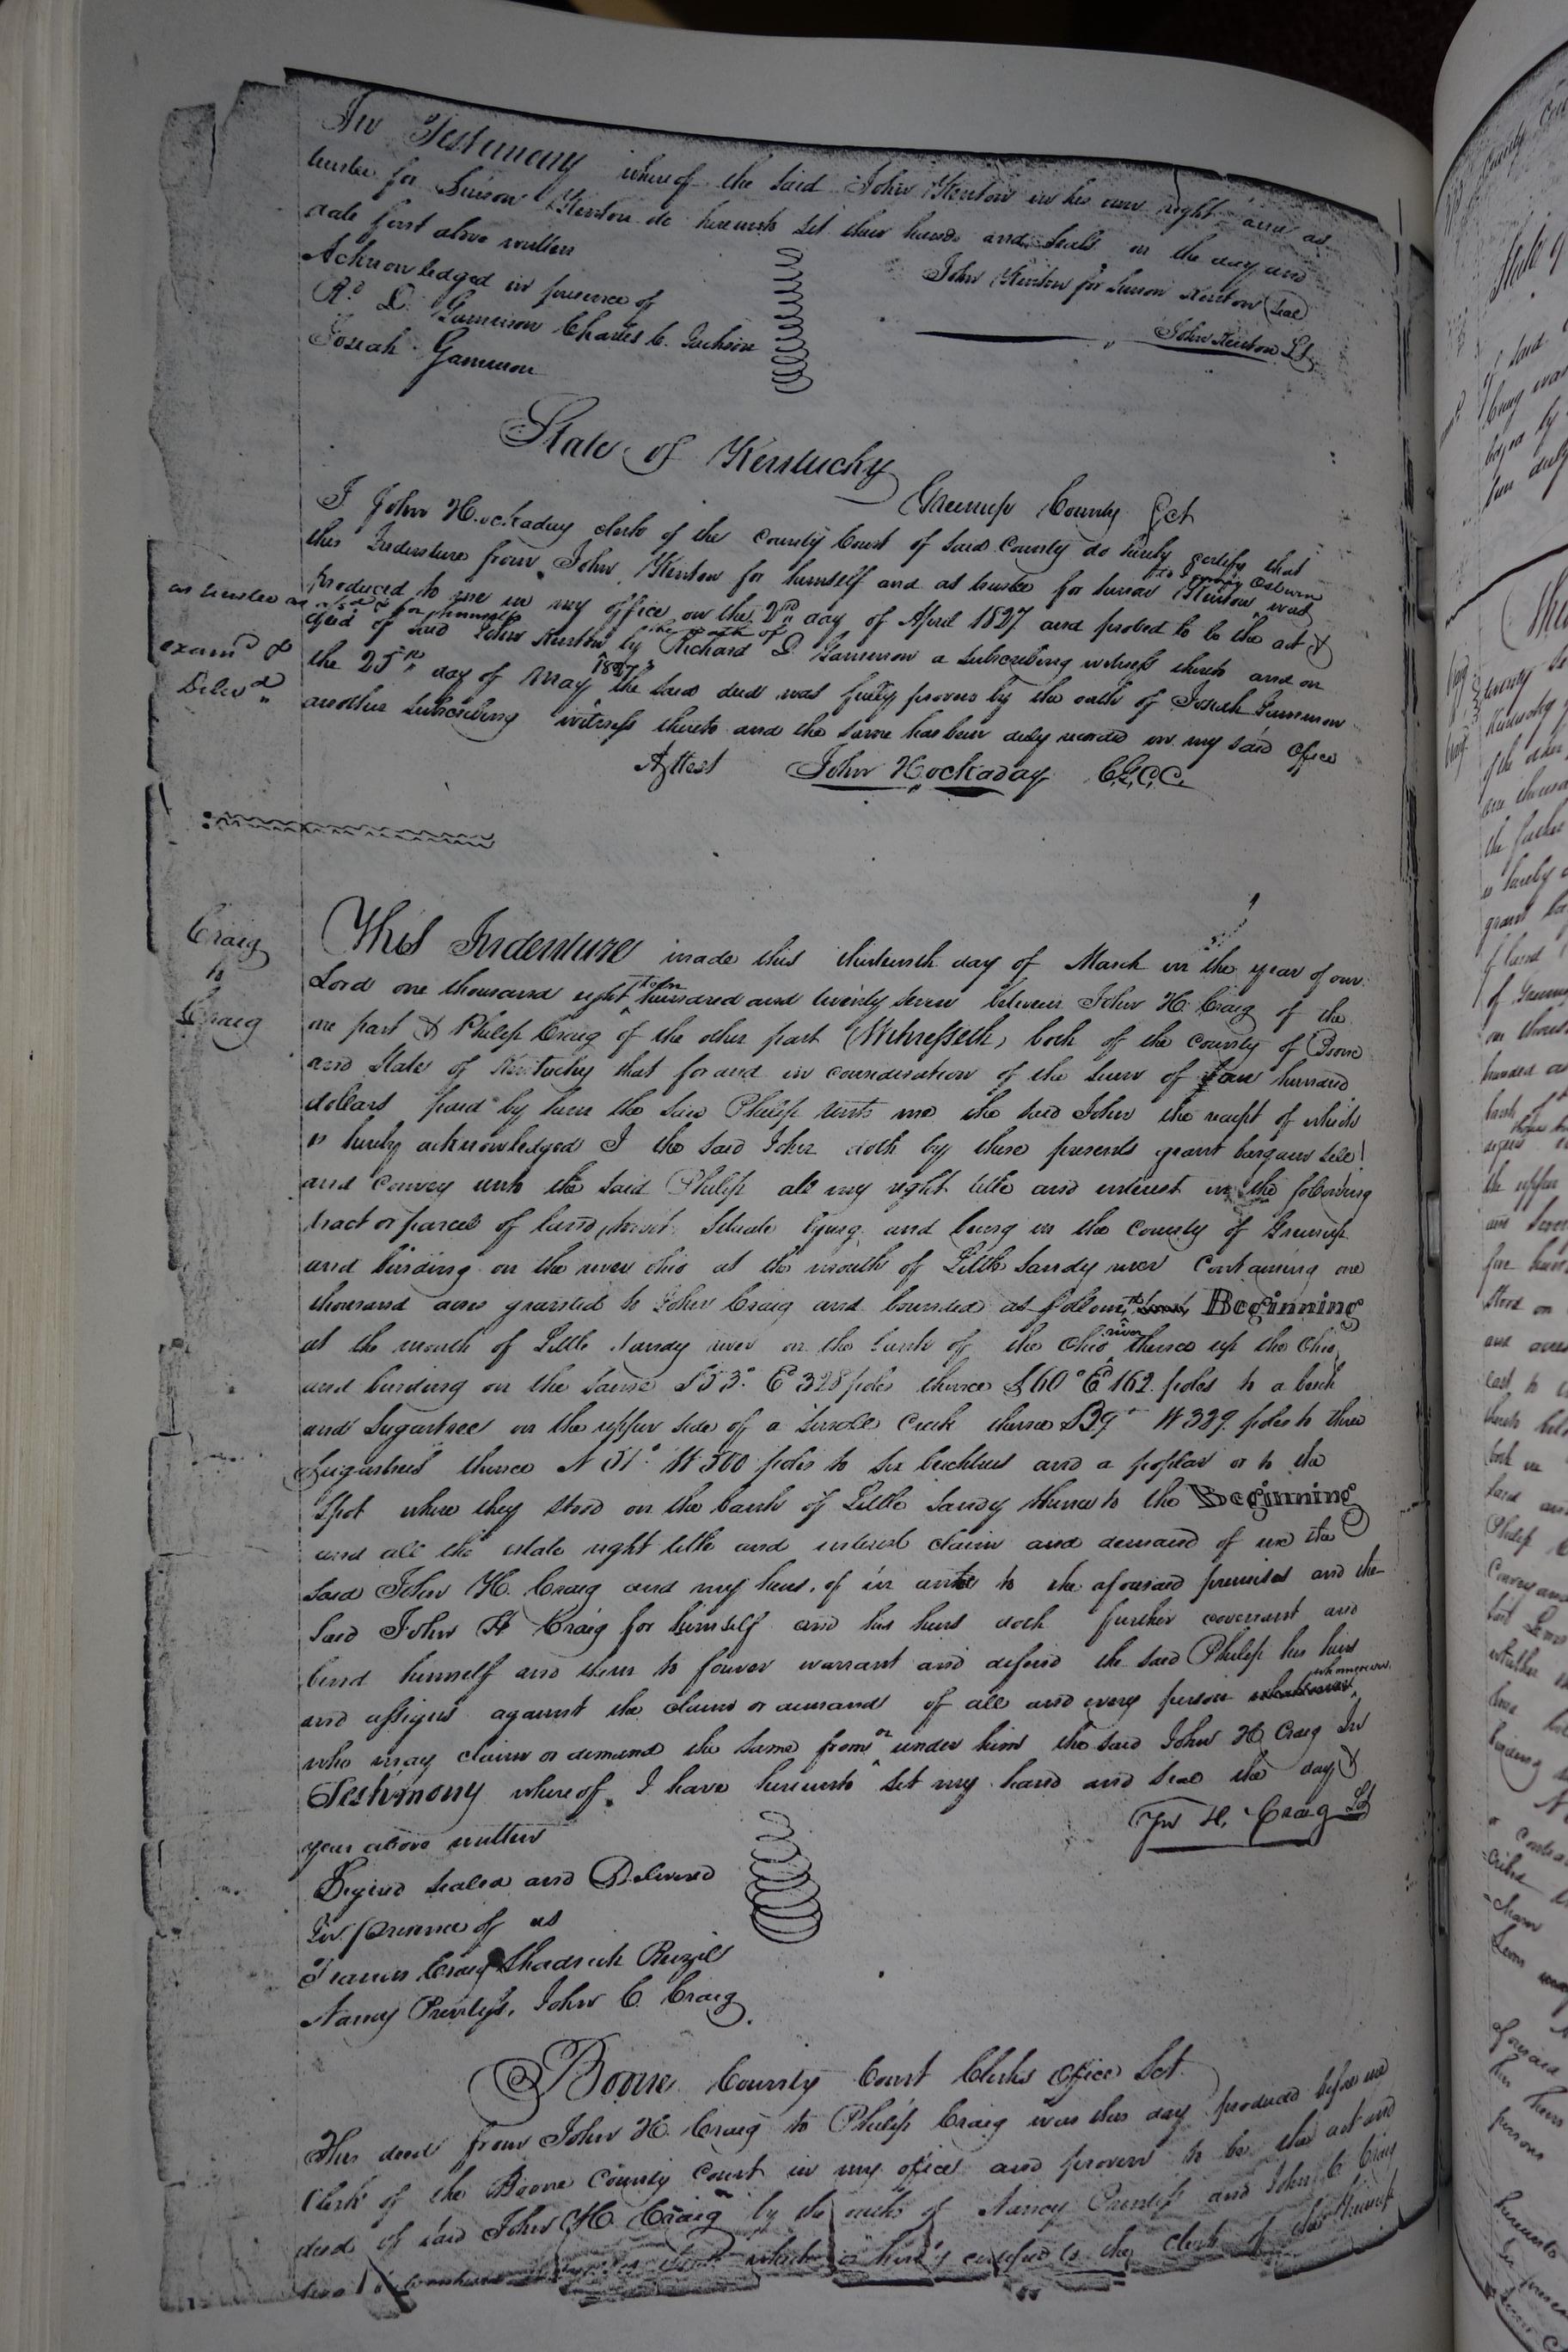 In Testimony whereof the said John Kenton in his own right and as
trustee for Simon Kenton do hereunto set their hands and seals on the day and
date first above written
Acknowledged in presence of
John Kenton for Simon Kenton (Seal)
Rd. D. Gammon Charles C. Jackson
John Kenton LS
Josiah Gammon
State of Kentucky
Greenup County Sct
I John Hockaday clerk of the County Court of said County do hereby certify that
this Indenture from John Kenton for himself and as trustee for Simon Kenton to Osburn was
produced to me in my office on the 2nd day of April 1827 and proved to be the act &
as trustee as afsd & for himself
deed of said John Kenton by the oath of Richard D. Gammon a subscribing witness thereto and on
examd &
the 25th day of May 1827 the said deed was fully proven by the oath of Josiah Gammon
Delivd
another subscribing witness thereto and the same has been duly recorded in my said office
Attest John Hockaday C.G.C.C.
Craig
to
Craig
This Indenture made this thirteenth day of March in the year of our
Lord one thousand eight hundred and twenty seven between John H. Craig of the
one part & Philip Craig of the other part (Witnesseth) both of the County of Boone
and State of Kentucky that for and in consideration of the sum of hundred
dollars paid by him the said Philip unto me the said John the receipt of which
is hereby acknowledged I the said John doth by these presents grant bargain sell
and convey unto the said Philip all my right title and interest in the following
tract or parcel of land situate lying and being in the County of Greenup
and binding on the river Ohio at the mouth of Little Sandy river containing one
thousand acres granted to John Craig and bounded as follows, Beginning
at the mouth of Little Sandy river on the bank of the Ohio river thence up the Ohio
and binding on the same S 53° E 328 poles thence S 60° E 162 poles to a beech
and Sugartree on the upper side of a small Creek thence S 39° W 389 poles to three
Sugartrees thence N 51° W 500 poles to six beechtrees and a poplar or to the
spot where they stood on the bank of Little Sandy thence to the Beginning
and all the estate right title and interest claim and demand of me the
said John H. Craig and my heirs, of in and to the aforesaid premises and the
said John H Craig for himself and his heirs doth further covenant and
bind himself and them to forever warrant and defend the said Philip his heirs
and assigns against the claims or demands of all and every person whomsoever
who may claim or demand the same from or under him the said John H Craig In
Testimony whereof I have hereunto set my hand and seal the day &
year above written
Jno H. Craig LS
Signed sealed and Delivered
In presence of us
Francis Craig Shadrach
Nancy Prentiss, John C. Craig
Boone County Court Clerks Office Sct
This deed from John H. Craig to Philip Craig was this day produced before me
Clerk of the Boone County Court in my office and proven to be the act and
deed of said John H. Craig by the oaths of Nancy Prentiss and John C Craig
two which is hereby certified to the clerk of the Greenup